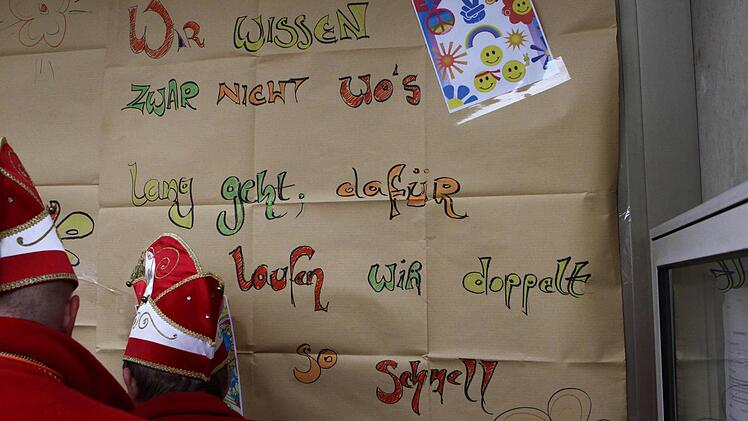 Wir WISSEN
ZWAR NICHT WO'S
lang geht, dafür
laufen wir doppelt
so schnell